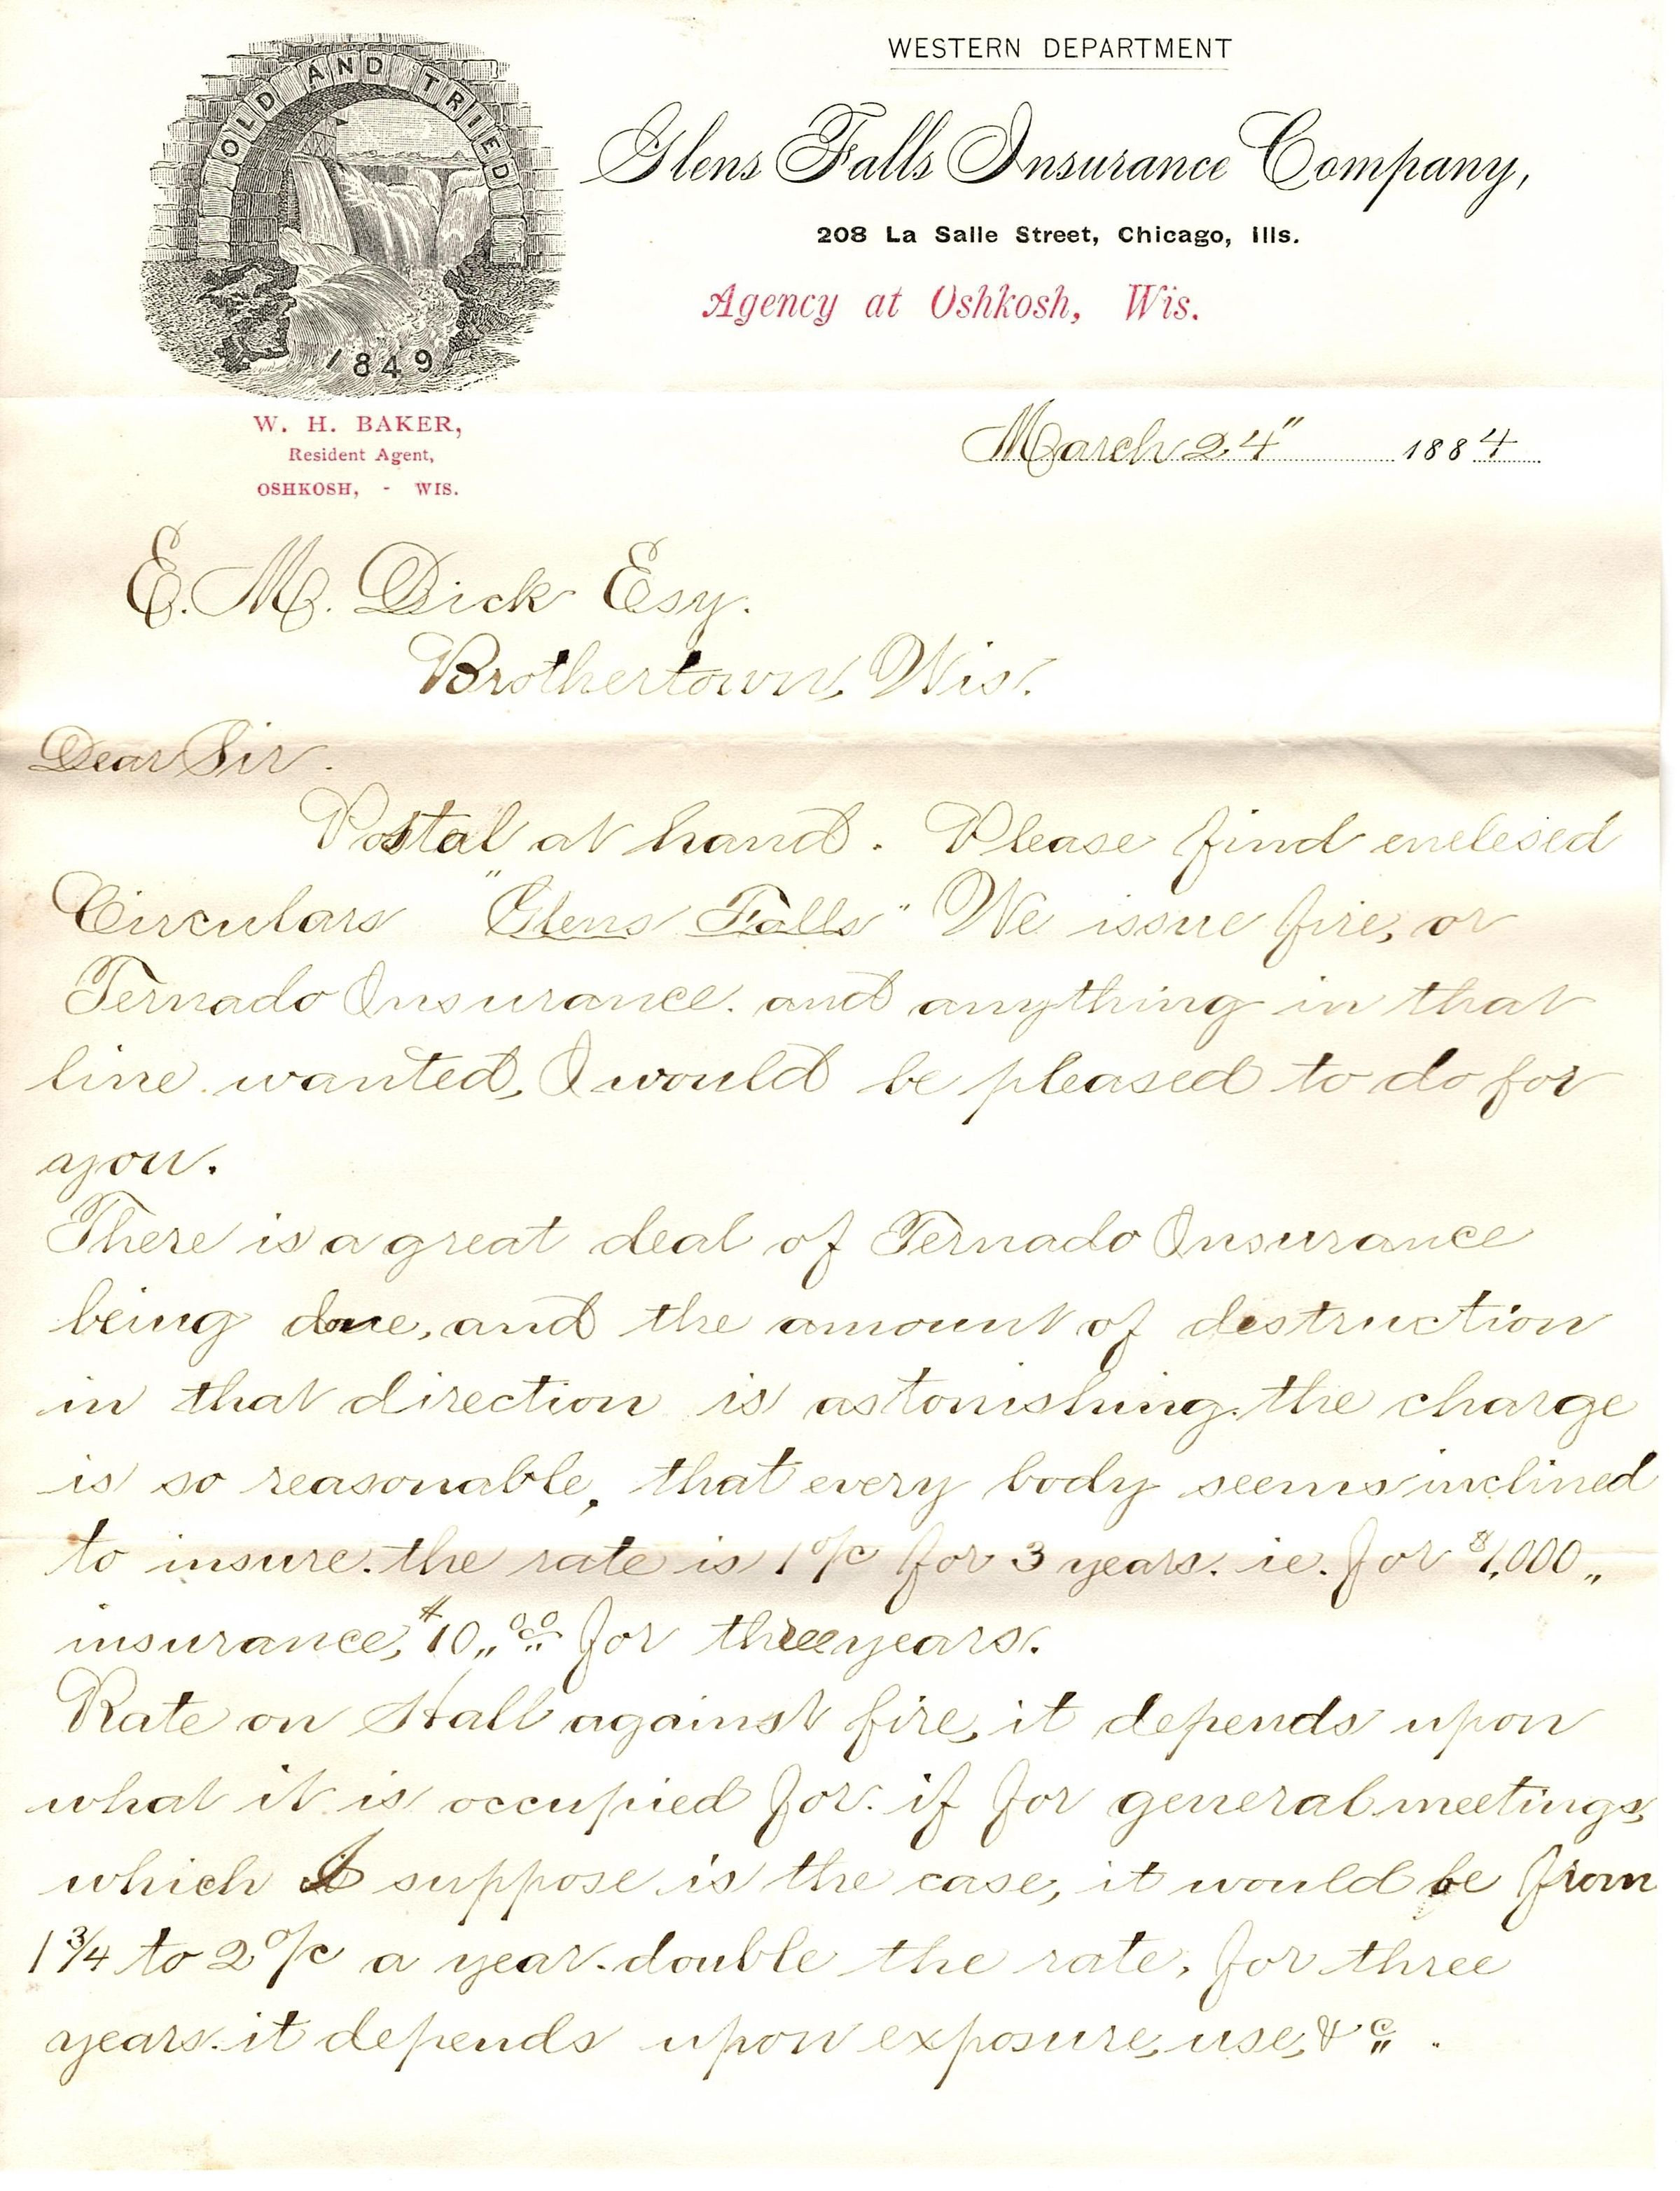 OLD AND TRIED
1849
WESTERN DEPARTMENT
Glens Falls Insurance Company,
208 La Salle Street, Chicago, Ills.
Agency at Oshkosh, Wis.
W. H. BAKER,
Resident Agent,
OSHKOSH, - WIS.
March 24" 1884
E. M. Dick Esq.
Brothertown, Wis.
Dear Sir.
Postal at hand. Please find enclosed
Circulars "Glens Falls" We issue fire, or
Ternado Insurance. and anything in that
line wanted, I would be pleased to do for
you.
There is a great deal of Ternado Insurance
being done, and the amount of destruction
in that direction is astonishing. the charge
is so reasonable, that every body seems inclined
to insure. the rate is 1 o/c for 3 years. ie. for $1,000 „
insurance, $10„ 00 for three years.
Rate on Hall against fire, it depends upon
what it is occupied for. if for general meetings,
which I suppose is the case, it would be from
1 3/4 to 2 o/c a year. double the rate, for three
years. it depends upon exposure, use, &c.